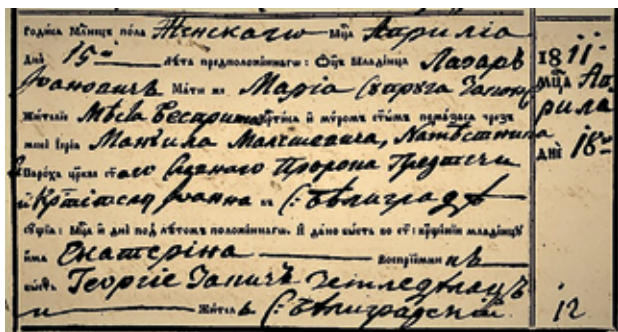 Родисѧ Мл҃нецъ пола Женскаго Мц҃а Априліа
Днѧ 15 лѣта предположеннагѡ: Оц҃ъ Младенца Лазаръ
Іоановичъ Мати же Маріа Супруга Законн
Жителіе Мѣста Крⷭ҇тисѧ и мѵромъ ст҃ымъ помазасѧ чрезъ
мене іереа
Пароха цр҃кве ст҃аго Славнаго Пророка Предтечи
и Крⷭ҇тителѧ Іоанна въ С: Бѣлиградѣ
сущіѧ: Мц҃а и днѧ под лѣтомъ положеннагѡ. И дано бысть во ст҃: крщ҃еніи младенцу
има Екатеріна Воспріемникъ
бысть Георгіе Запичъ Земледѣлацъ
и Жителъ С: Бѣлиградскій
1811
Мц҃а Ап
рила
днѧ 18
12